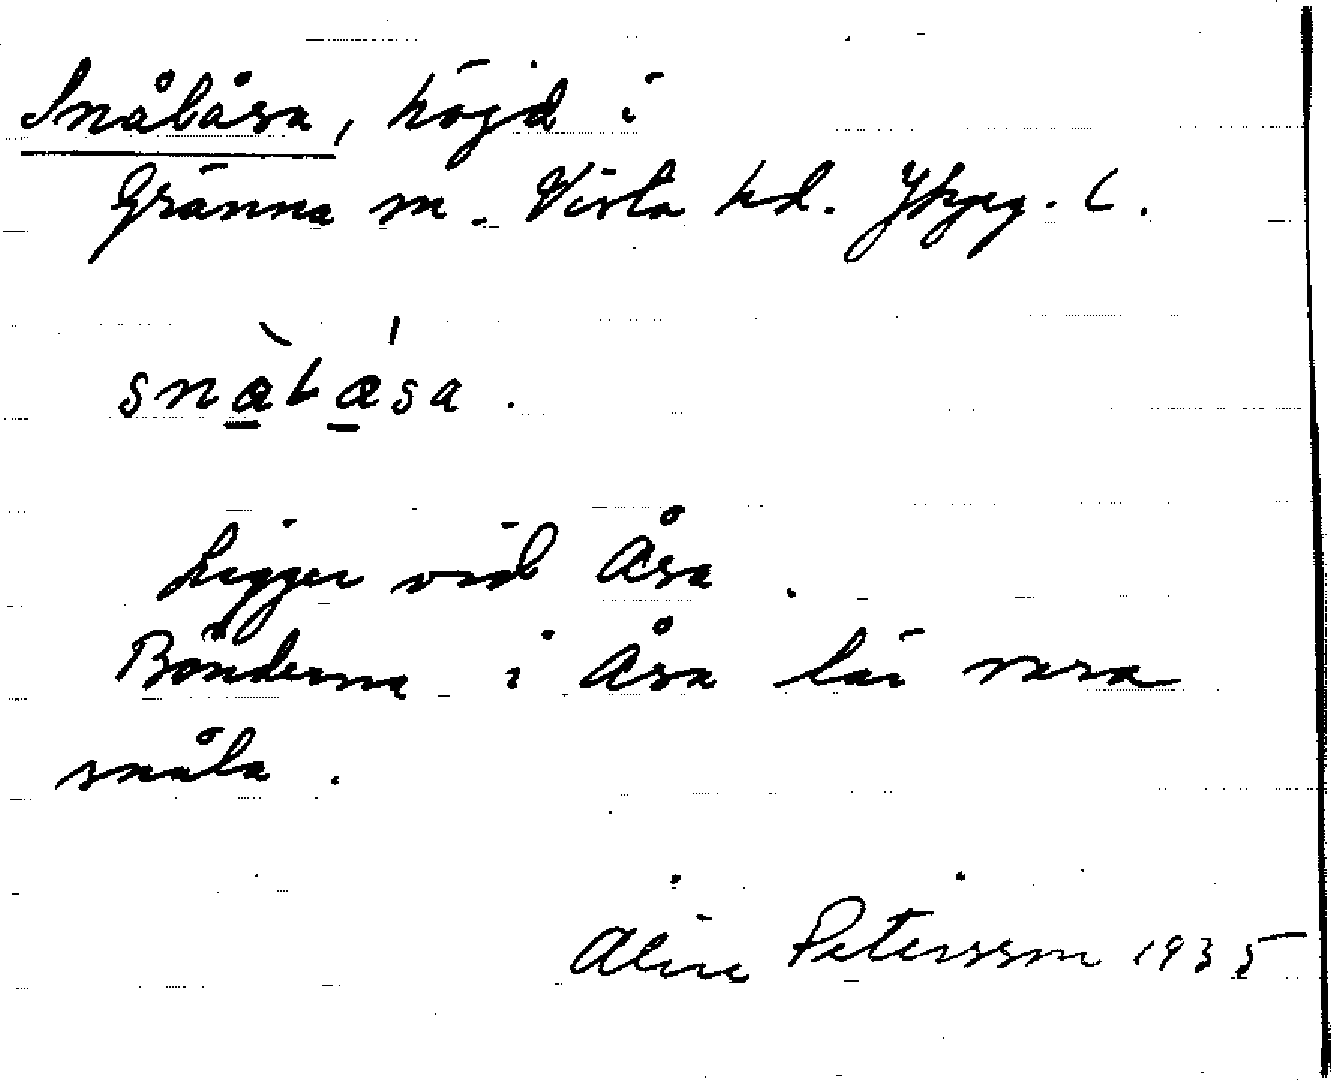 Snålåsa, höjd i
Gränna sn. Vista hd. Jkpg. L.
snålåsa.
Ligger vid Åsa.
Bönderna i Åsa lär vara
snåla.
Aline Petersson 1935